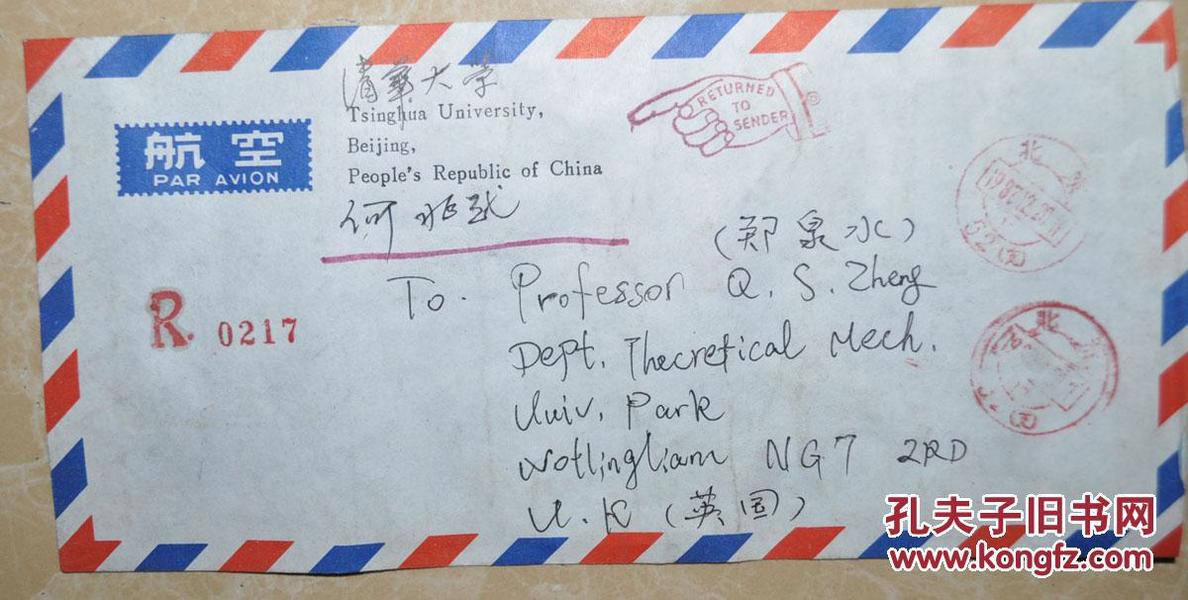 清华大学
Tsinghua University,
Beijing,
People's Republic of China
何兆武
航空
PAR AVION
RETURNED
TO
SENDER
R 0217
(郑泉水)
To. Professor Q. S. Zheng
Dept. Theoretical Mech.
Univ. Park
Nottingham NG7 2RD
U.K (英国)
北
52(支)
北
孔夫子旧书网
www.kongfz.com